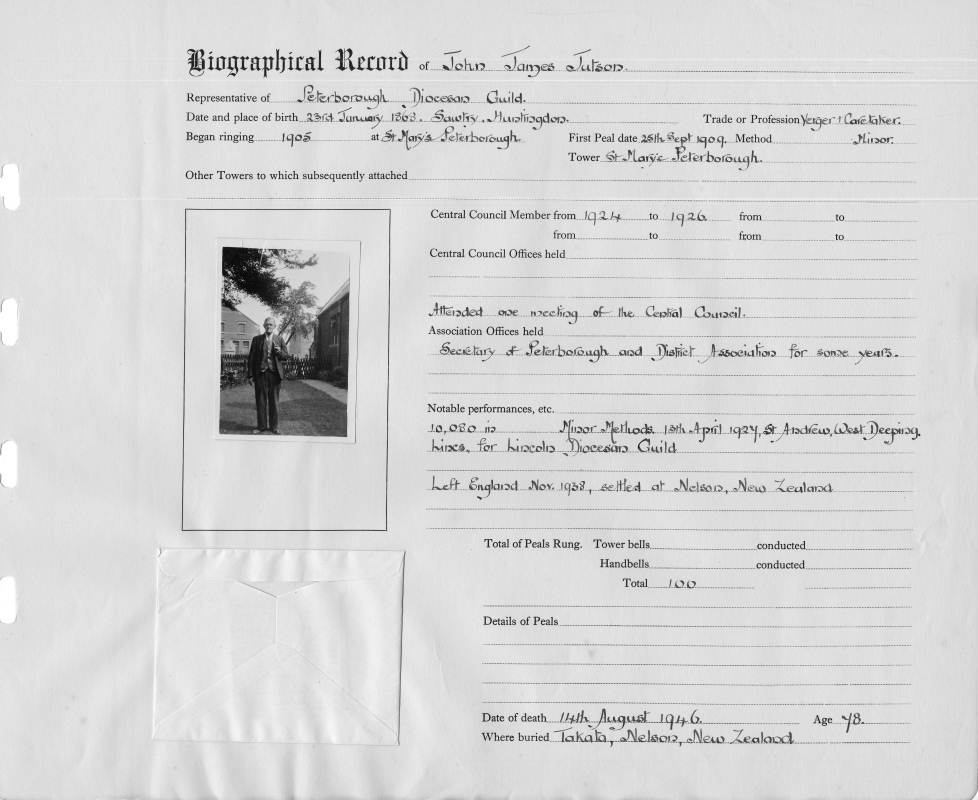 Biographical Record of John James Jutson.
Representative of Peterborough Diocesan Guild.
Date and place of birth 23rd January 1868. Sawtry. Huntingdon. Trade or Profession Verger & Caretaker.
Began ringing 1905 at St Mary's Peterborough First Peal date 25th Sept 1909. Method Minor.
Tower St Mary's Peterborough.
Other Towers to which subsequently attached
Central Council Member from 1924 to 1926 from to
from to from to
Central Council Offices held
Attended one meeting of the Central Council.
Association Offices held
Secretary of Peterborough and District Association for some years.
Notable performances, etc.
10,080 in Minor Methods 18th April 1927, St Andrew, West Deeping,
Lincs. for Lincoln Diocesan Guild
Left England Nov. 1938, settled at Nelson, New Zealand
Total of Peals Rung. Tower bells conducted
Handbells conducted
Total 100
Details of Peals
Date of death 14th August 1946. Age 78.
Where buried Takata, Nelson, New Zealand